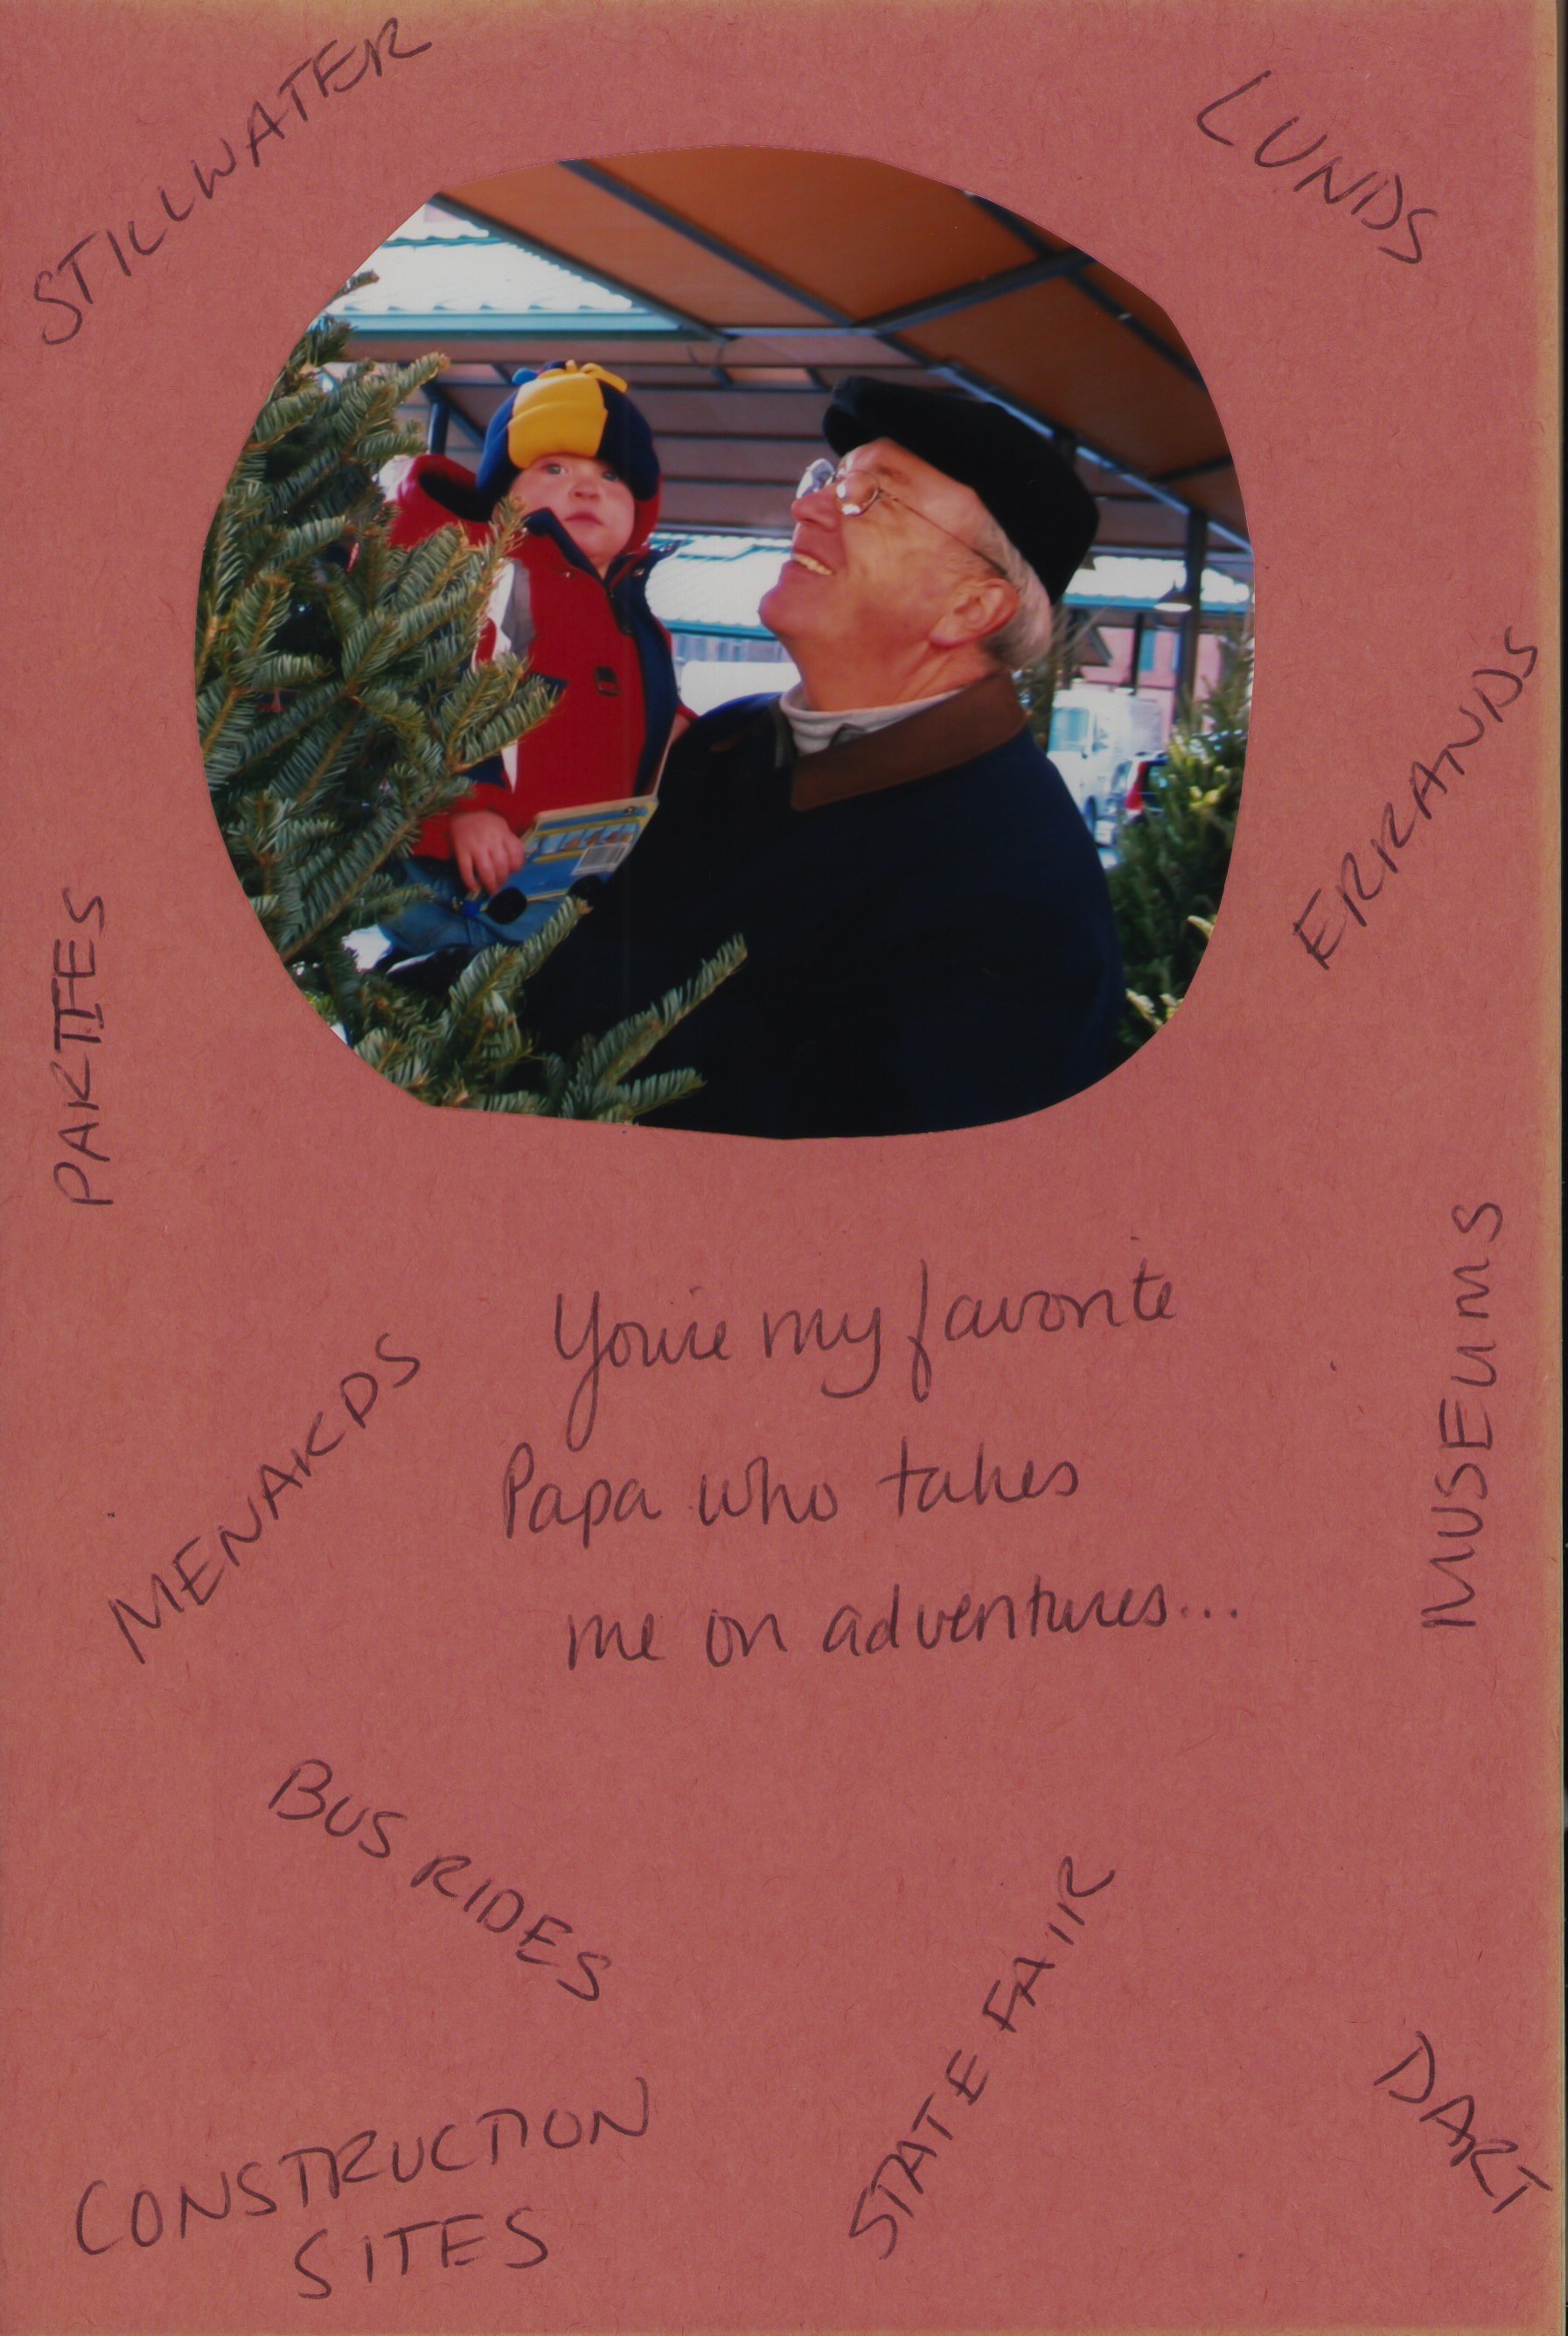 STILLWATER
LUNDS
ERRANDS
PARTIES
MUSEUMS
You're my favorite
Papa who takes
me on adventures...
MENARDS
BUS RIDES
STATE FAIR
DART
CONSTRUCTION
SITES